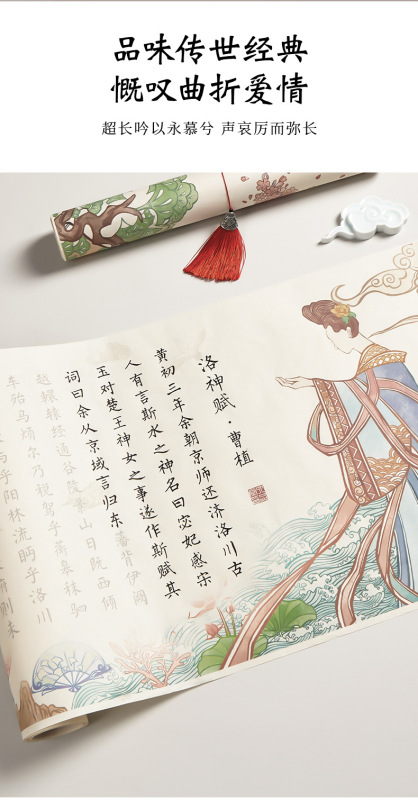 品味传世经典
慨叹曲折爱情
超长吟以永慕兮 声哀厉而弥长
洛神赋·曹植
黄初三年余朝京师还济洛川古
人有言斯水之神名曰宓妃感宋
玉对楚王神女之事遂作斯赋其
词曰余从京域言归东藩背伊阙
越轘辕经通谷陵景山日既西倾
车殆马烦尔乃税驾乎蘅皋秣驷
乎阳林流眄乎洛川
俯则未